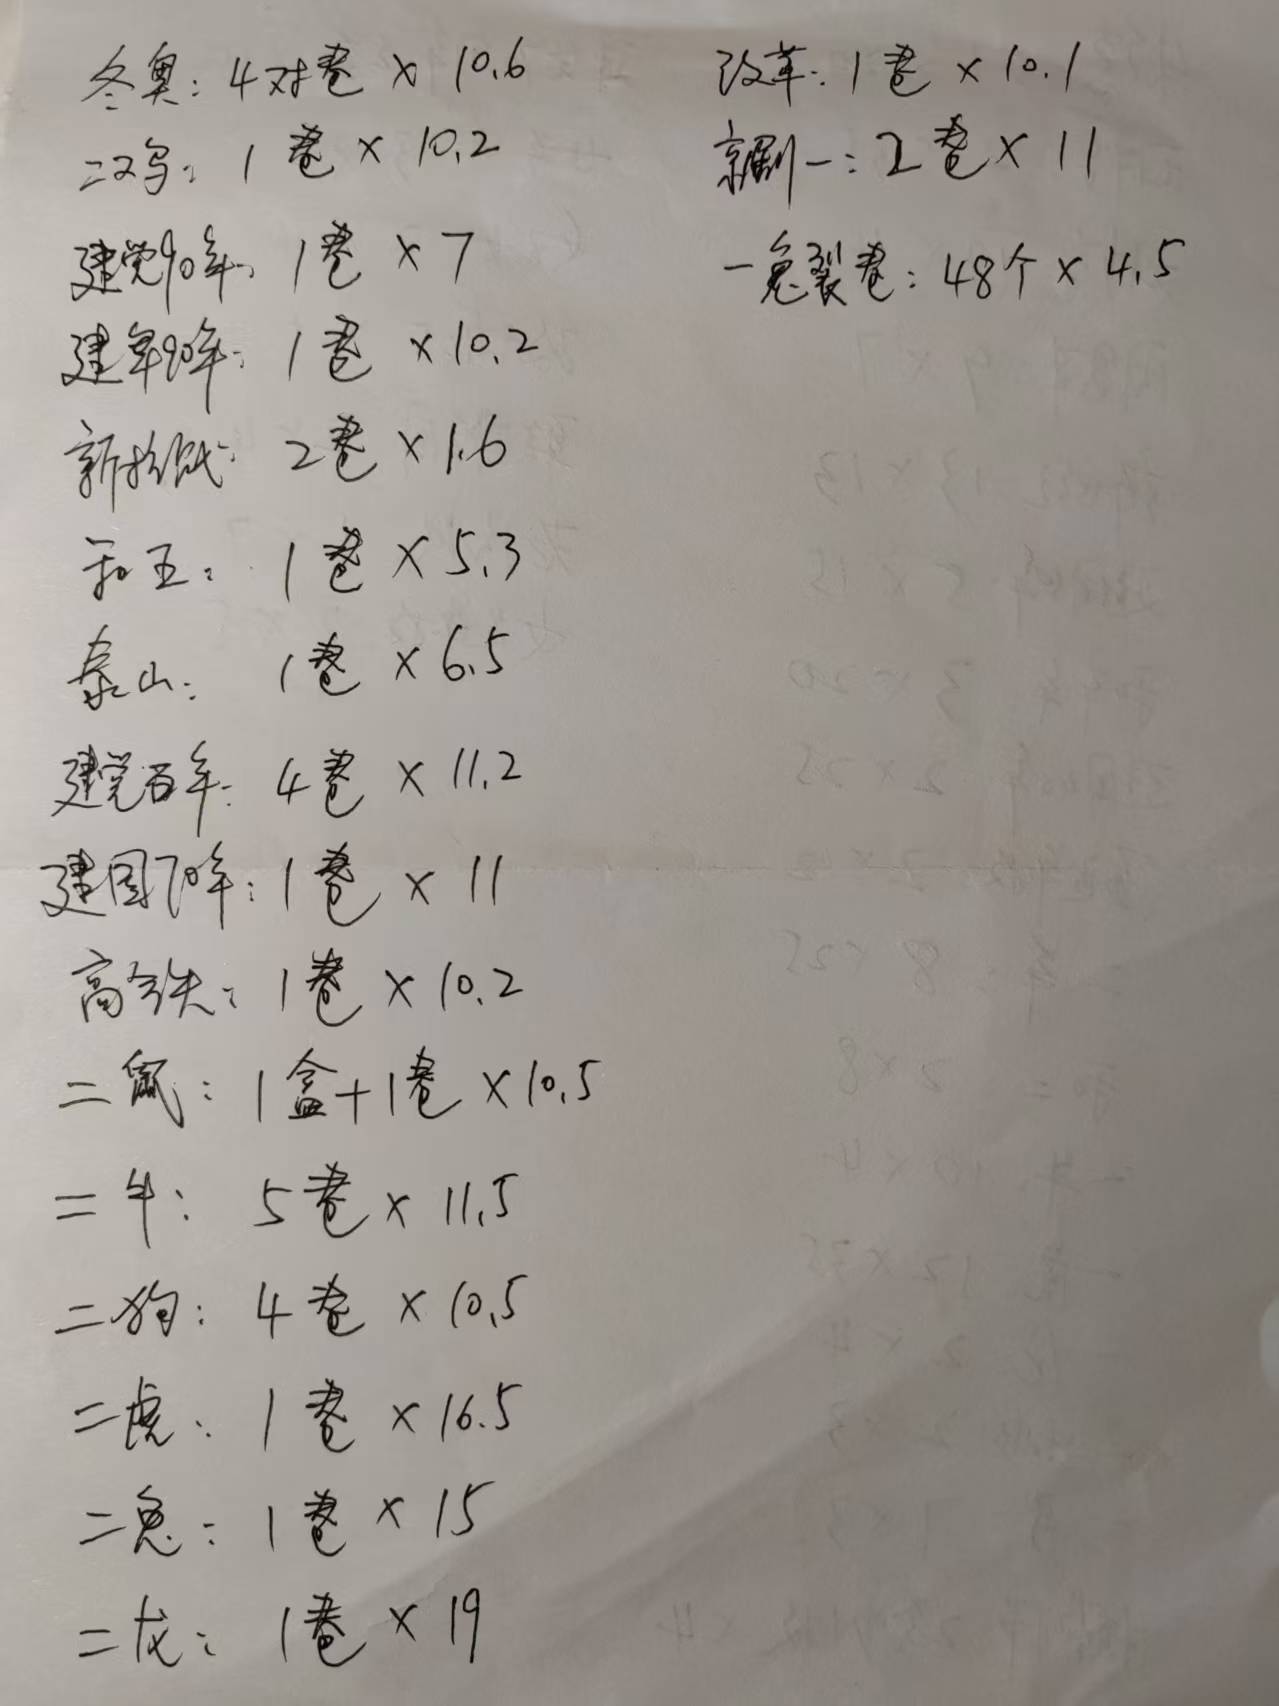 冬奥：4对卷 × 10.6
二鸡：1卷 × 10.2
建党90年：1卷 × 7
建军90年：1卷 × 10.2
2卷 × 1.6
和五：1卷 × 5.3
泰山：1卷 × 6.5
建党百年：4卷 × 11.2
建国70年：1卷 × 11
高铁：1卷 × 10.2
二鼠：1盒+1卷 × 10.5
二牛：5卷 × 11.5
二狗：4卷 × 10.5
二虎：1卷 × 16.5
二兔：1卷 × 15
二龙：1卷 × 19
改革：1卷 × 10.1
京剧一：2卷 × 11
一兔裂卷：48个 × 4.5